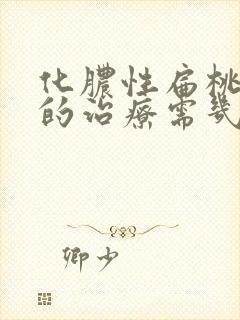 化膿性扁桃
的治療需幾
卿少